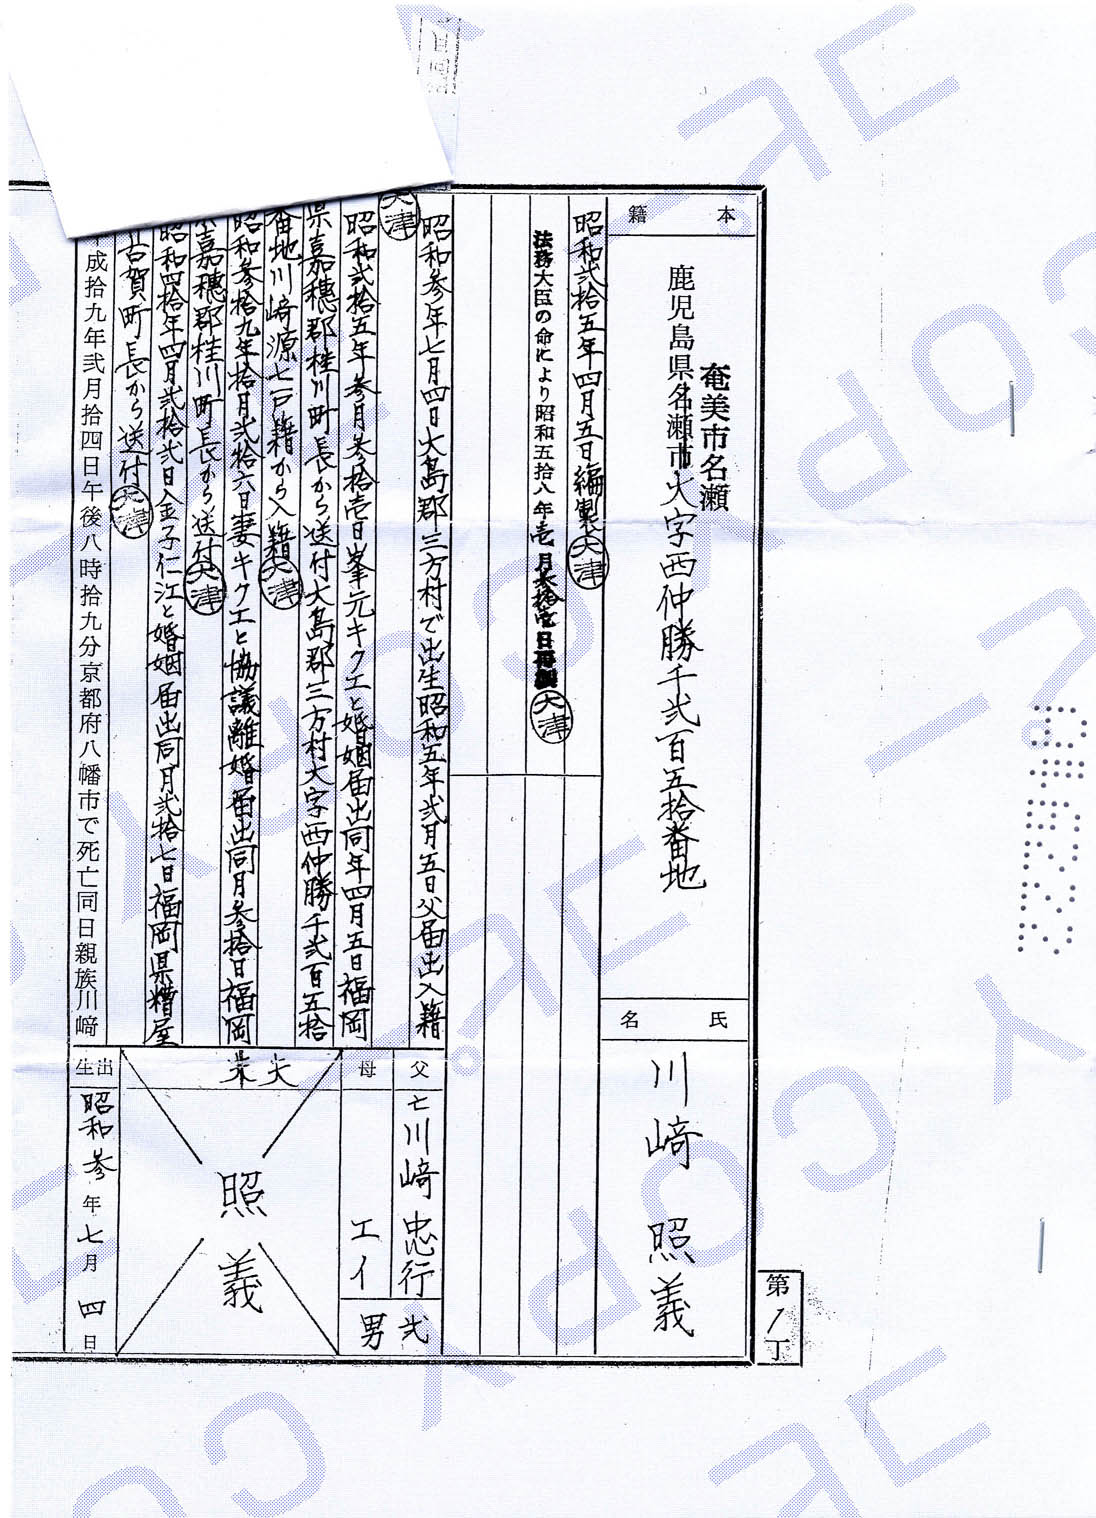 本籍
奄美市名瀬
鹿児島県名瀬市大字西仲勝千弐百五拾番地
氏名
川﨑 照義
第1丁
昭和弐拾五年四月五日編製
大津
法務大臣の命により昭和五拾八年壱月
日再製
大津
昭和参年七月四日大島郡三方村で出生昭和五年弐月五日父届出入籍
大津
昭和弐拾五年参月参拾壱日峯元キクエと婚姻届出同年四月五日福岡
県嘉穂郡桂川町長から送付大島郡三方村大字西仲勝千弐百五拾
番地川﨑源七戸籍から入籍
大津
昭和参拾九年拾月弐拾六日妻キクエと協議離婚届出同月参拾日福岡
県嘉穂郡桂川町長から送付
大津
昭和四拾年四月弐拾弐日金子仁江と婚姻届出同月弐拾七日福岡県糟屋
古賀町長から送付
大津
成拾九年弐月拾四日午後八時拾九分京都府八幡市で死亡同日親族川﨑
父
亡川﨑 忠行
母
エイ
弐男
夫
照義
出生
昭和参年七月四日
COPY